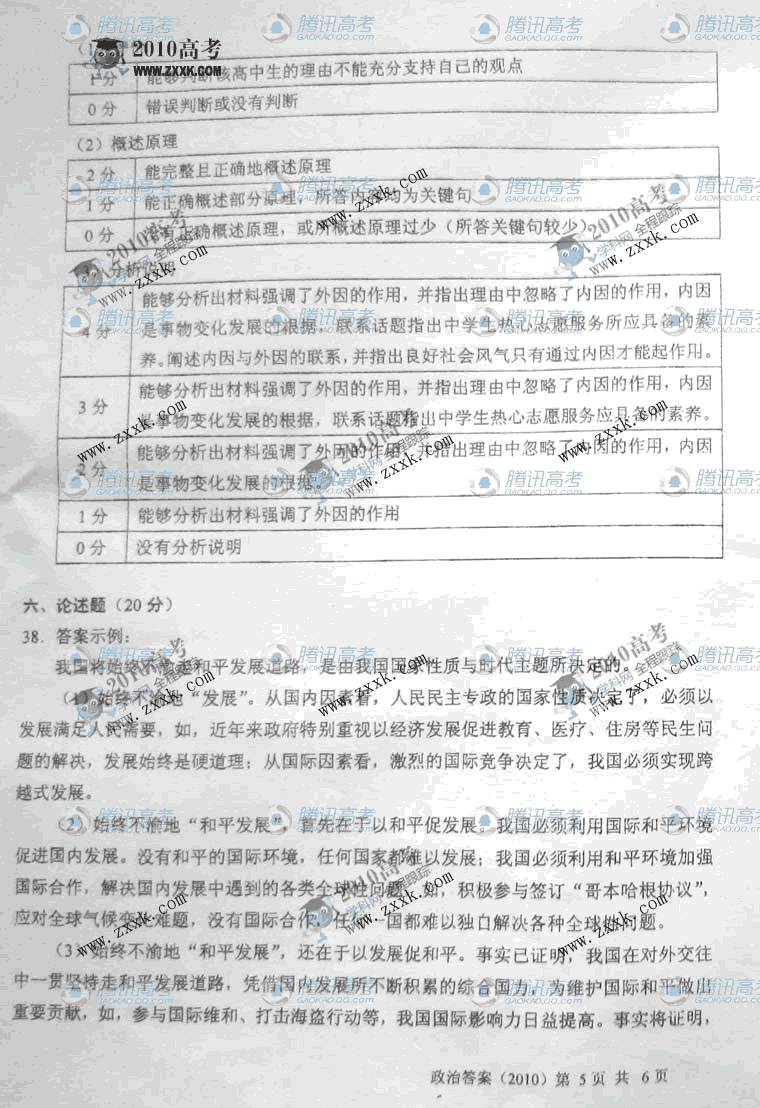 2010高考
www.zxxk.com
1分 能够判断该高中生的理由不能充分支持自己的观点
0分 错误判断或没有判断
（2）概述原理
2分 能完整且正确地概述原理
1分 能正确概述部分原理，所答内容均为关键句
0分 没有正确概述原理，或所概述原理过少（所答关键句较少）
分析说明
4分 能够分析出材料强调了外因的作用，并指出理由中忽略了内因的作用，内因
是事物变化发展的根据，联系话题指出中学生热心志愿服务所应具备的素
养。阐述内因与外因的联系，并指出良好社会风气只有通过内因才能起作用。
3分 能够分析出材料强调了外因的作用，并指出理由中忽略了内因的作用，内因
是事物变化发展的根据，联系话题指出中学生热心志愿服务应具备的素养。
2分 能够分析出材料强调了外因的作用，并指出理由中忽略了内因的作用，内因
是事物变化发展的根据。
1分 能够分析出材料强调了外因的作用
0分 没有分析说明
六、论述题（20分）
38. 答案示例：
我国将始终不渝走和平发展道路，是由我国国家性质与时代主题所决定的。
（1）始终不渝地“发展”。从国内因素看，人民民主专政的国家性质决定了，必须以
发展满足人民需要，如，近年来政府特别重视以经济发展促进教育、医疗、住房等民生问
题的解决，发展始终是硬道理；从国际因素看，激烈的国际竞争决定了，我国必须实现跨
越式发展。
（2）始终不渝地“和平发展”，首先在于以和平促发展。我国必须利用国际和平环境
促进国内发展。没有和平的国际环境，任何国家都难以发展；我国必须利用和平环境加强
国际合作，解决国内发展中遇到的各类全球性问题，如，积极参与签订“哥本哈根协议”，
应对全球气候变化难题，没有国际合作，任何一国都难以独自解决各种全球性问题。
（3）始终不渝地“和平发展”，还在于以发展促和平。事实已证明，我国在对外交往
中一贯坚持走和平发展道路，凭借国内发展所不断积累的综合国力，为维护国际和平做出
重要贡献，如，参与国际维和、打击海盗行动等，我国国际影响力日益提高。事实将证明，
政治答案（2010）第 5 页 共 6 页